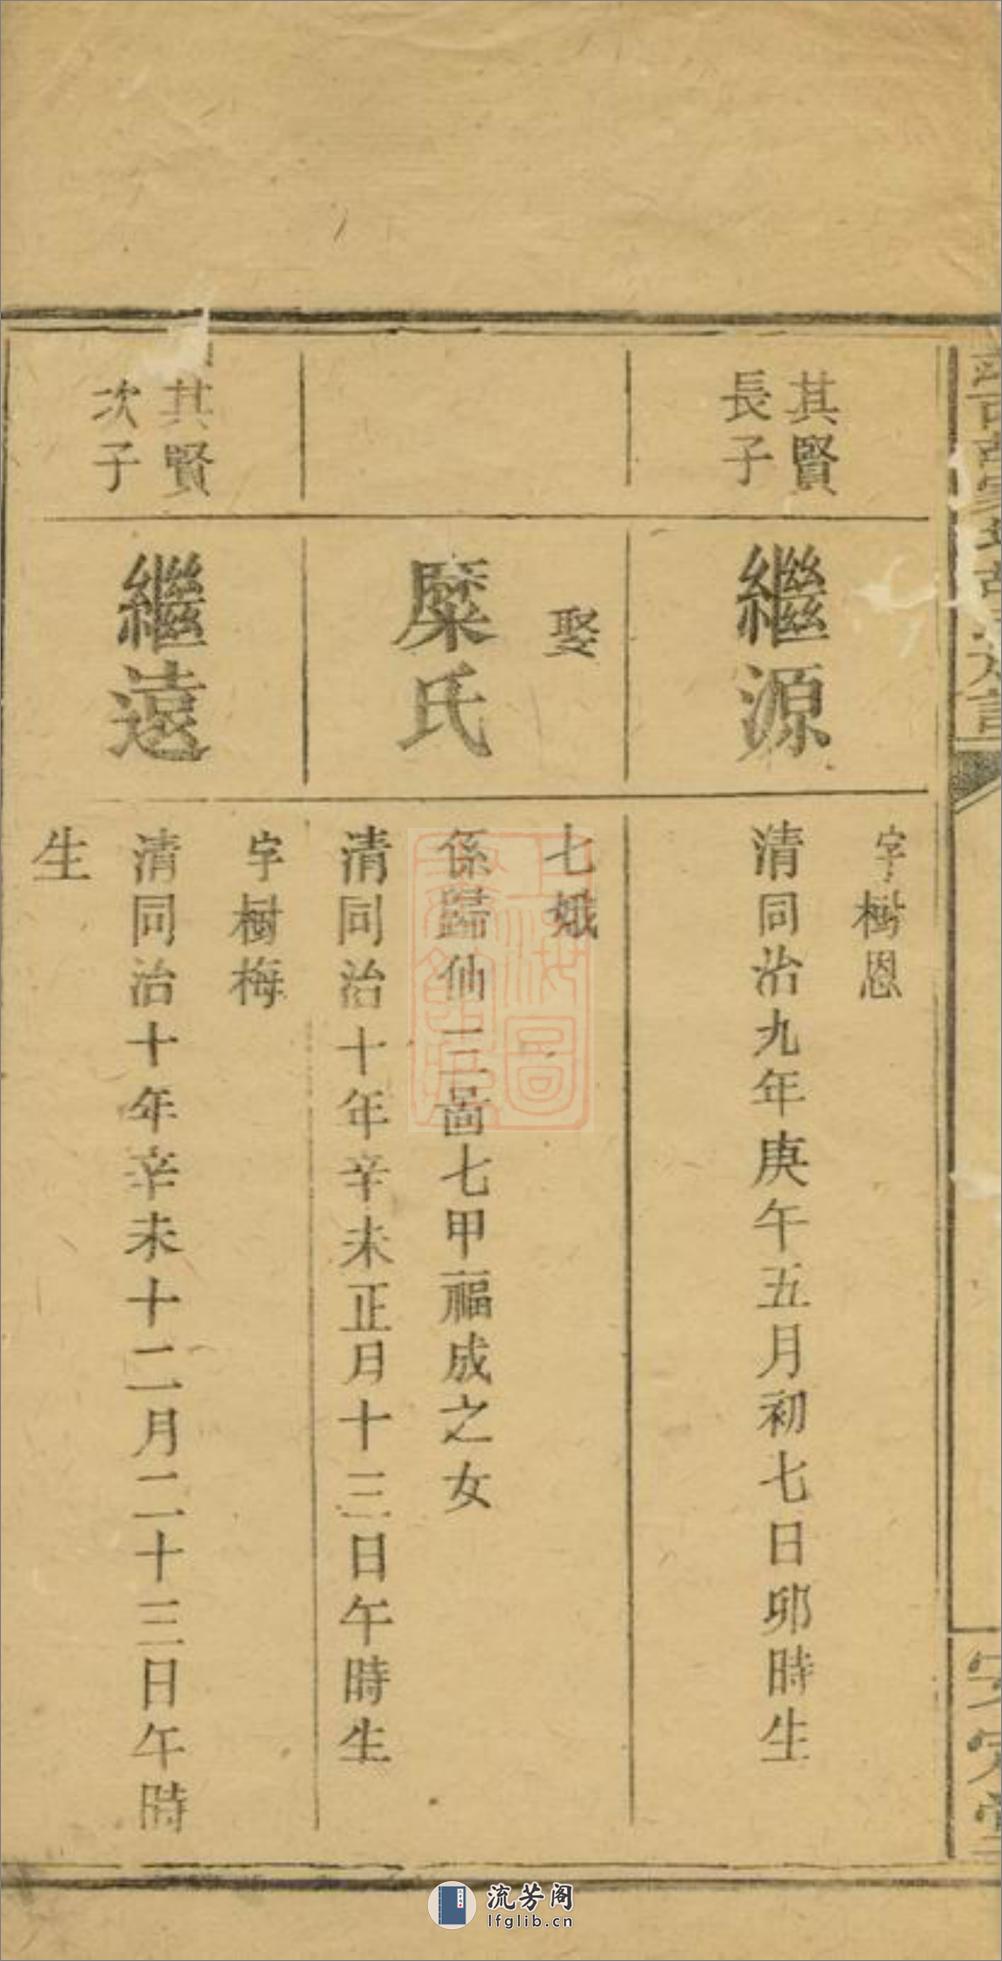 其賢
長子
繼源
字樹恩
清同治九年庚午五月初七日卯時生
娶
糜氏
七娥
係歸仙三啚七甲福成之女
清同治十年辛未正月十三日午時生
其賢
次子
繼遠
字樹梅
清同治十年辛未十二月二十三日午時
生
流芳阁
lfglib.cn